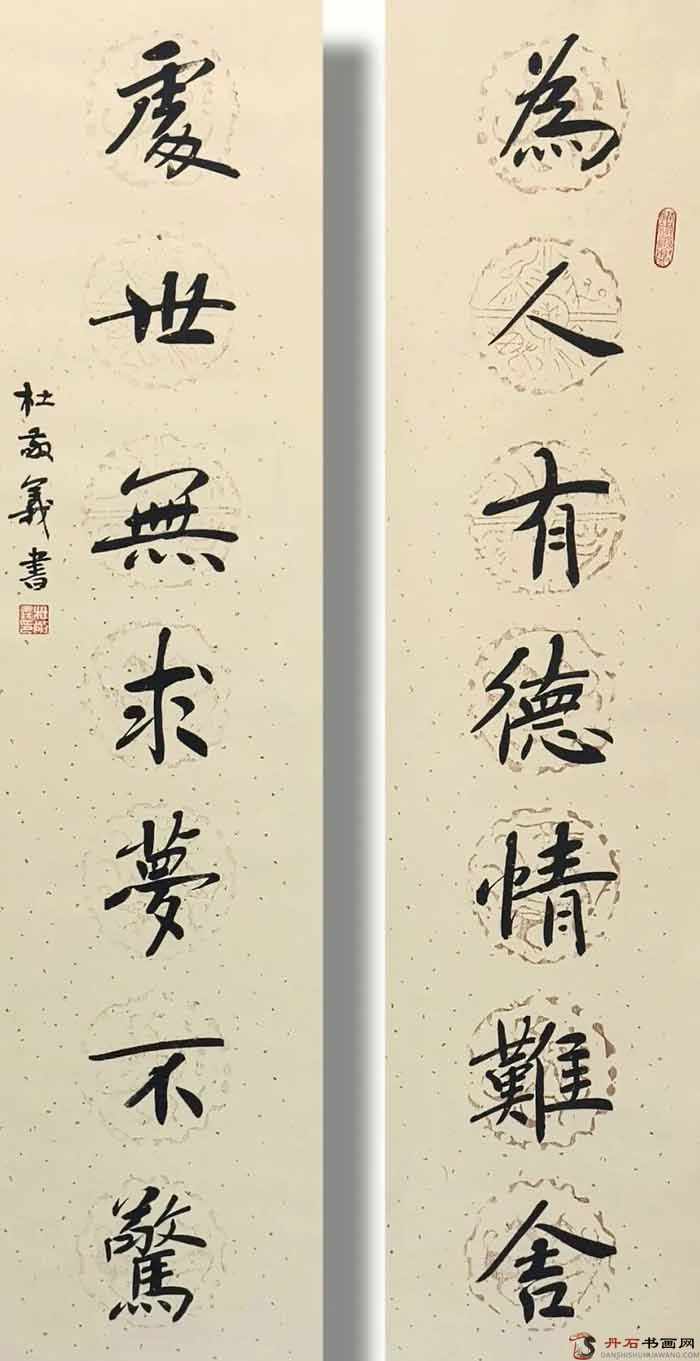 為人有德情難舍
處世無求夢不驚
杜敬義書
丹石书画网
DANSHISHUHUAWANG.COM